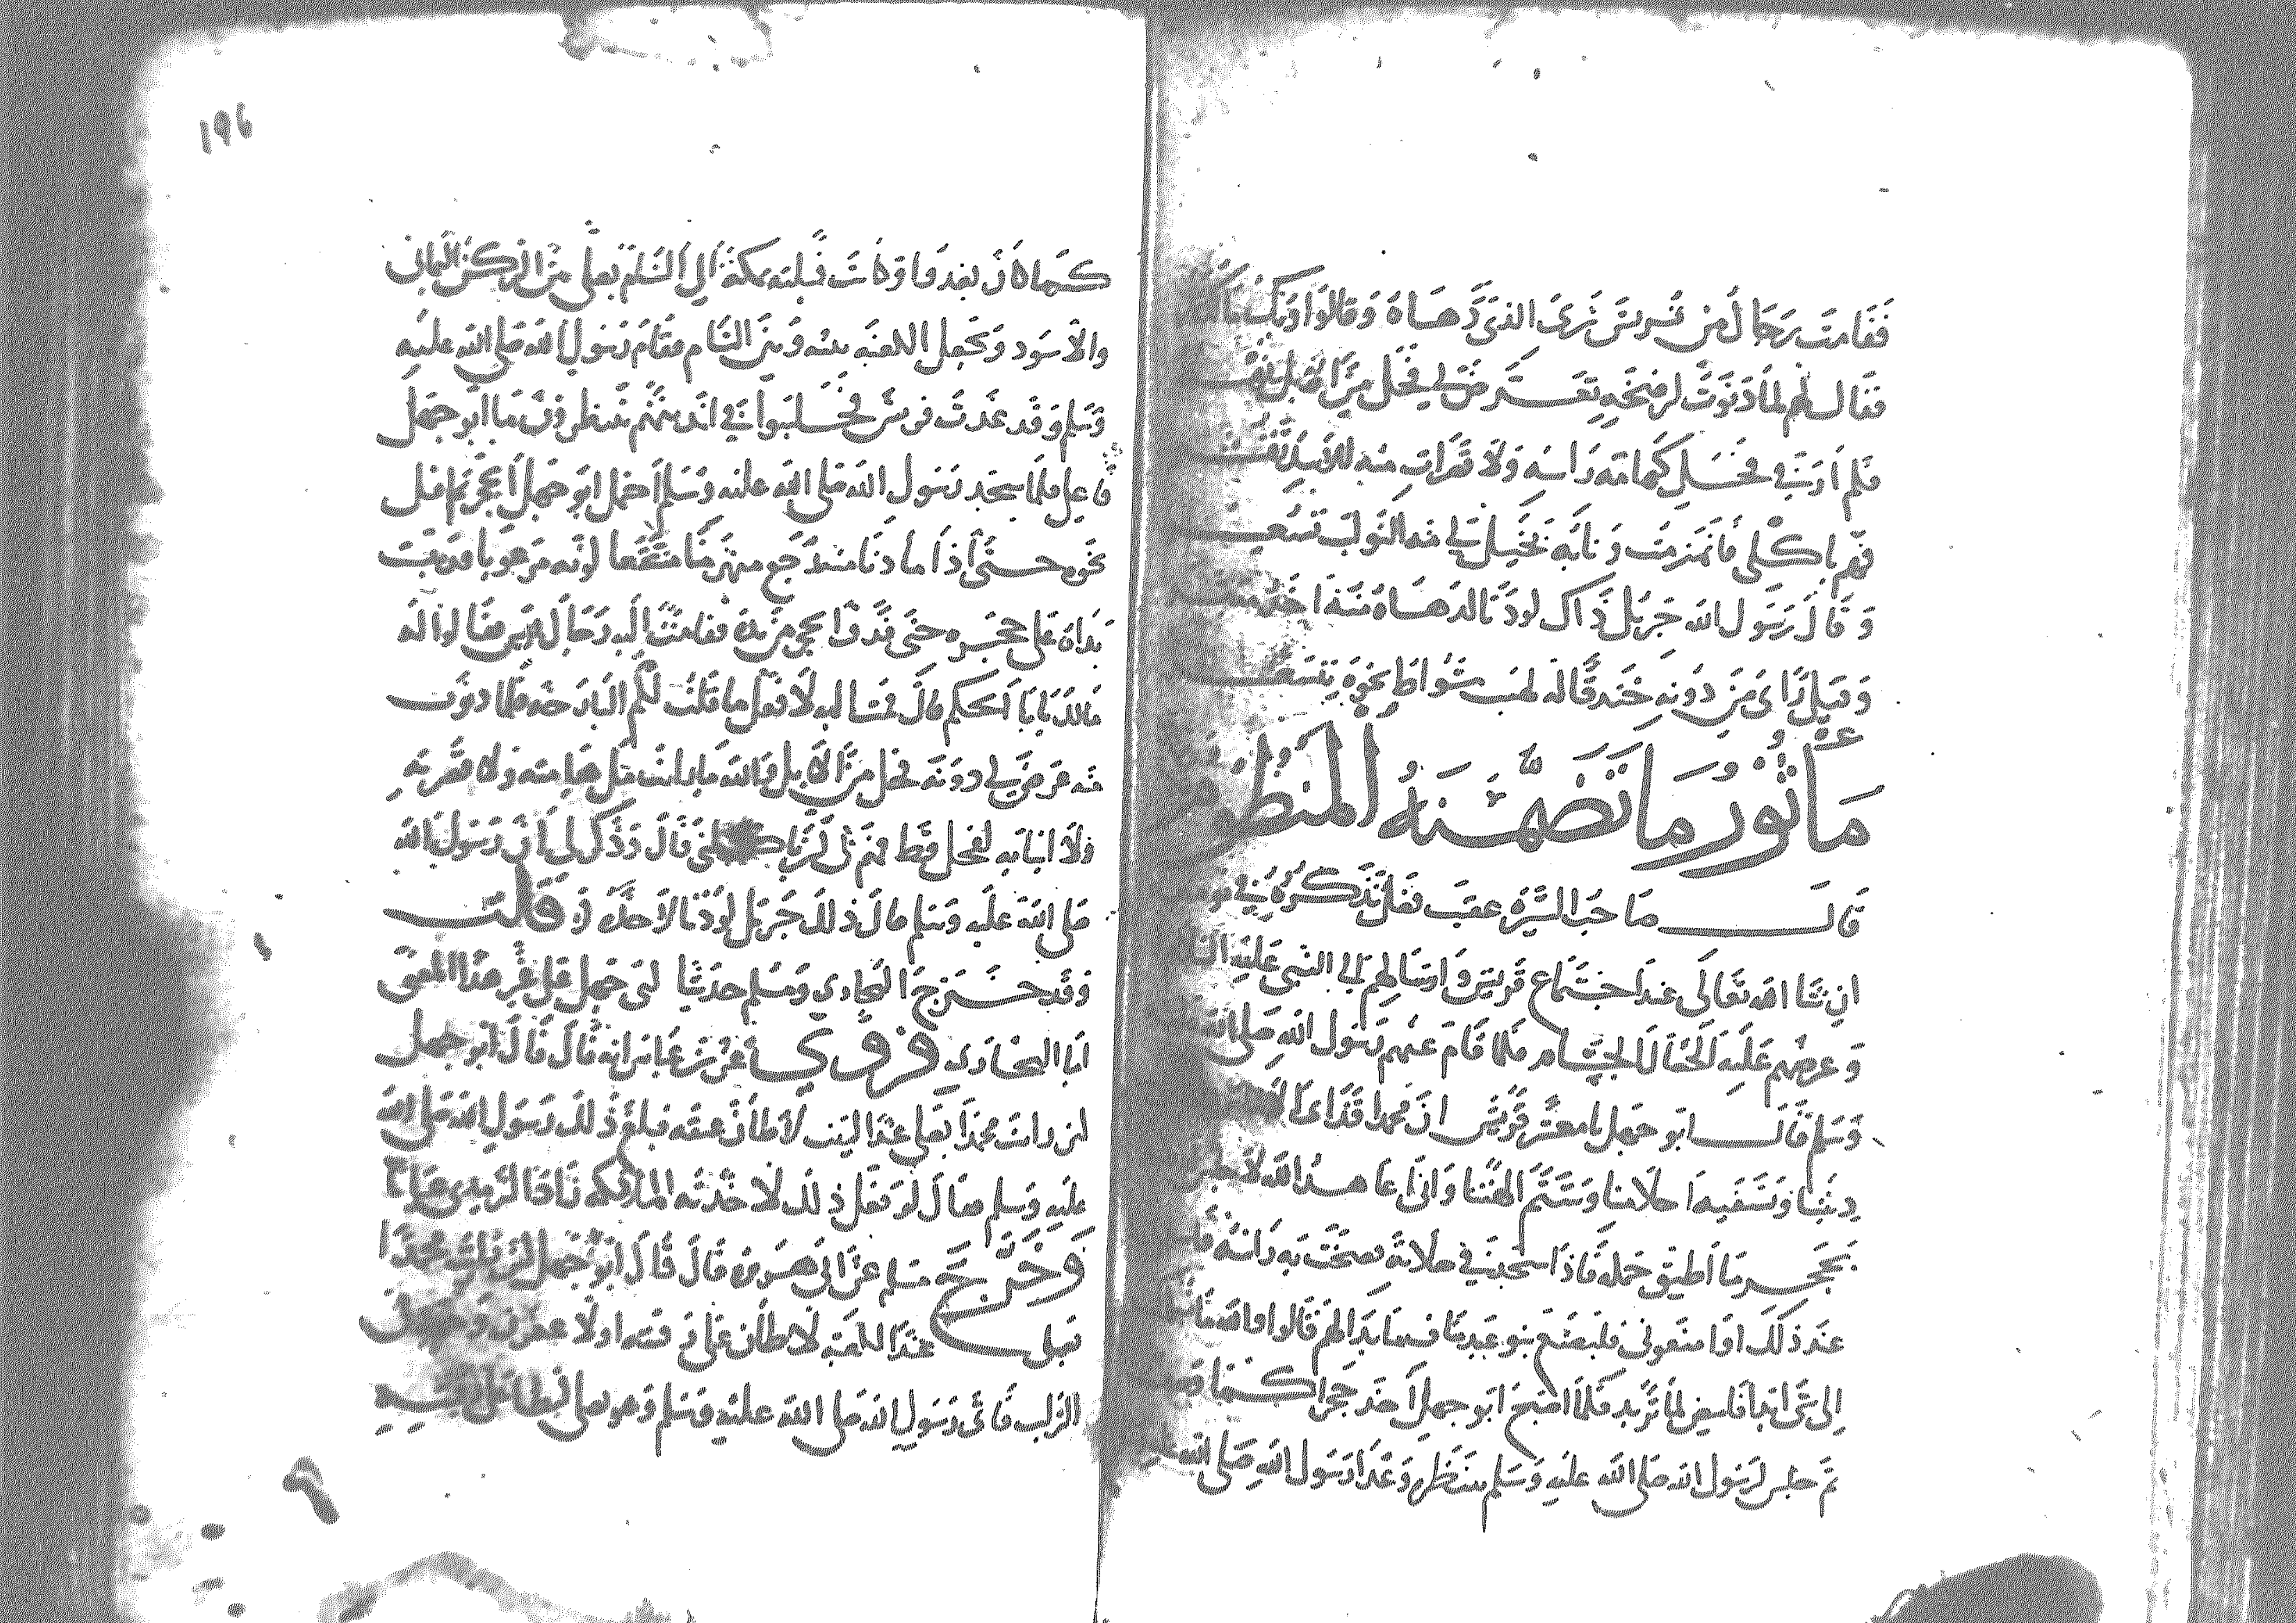 فقامت رجال من قريش ترى الذي دهاه وقالوا
فقال لهم لما دنوت لرضخه تعرض لي فحل من
فلم أر في فحل كهامته رأسه ولا قصرات منه
فهم بأكلي فانهزمت ونابه يخيل لي منه النوائب
وقال رسول الله جبريل ذاك لو دنا لدهاه منه أخذ
وقيل رأى من دونه خندقا له لهب شواظ نحوه
مأثور ما تضمنه المنظوم
قال صاحب السيرة عقب نقل تذكره في
ان شا الله تعالى عند اجتماع قريش وارسالهم الى النبي عليه السلم
وعرضهم عليه فلما قام عنهم رسول الله صلى الله
وسلم قال ابو جهل يا معشر قريش ان محمدا قد ابى الا
ديننا وتسفيه احلامنا وشتم الهتنا واني اعاهد الله لاجلس
بحجر ما اطيق حمله فاذا سجد في صلاته فضخت به راسه
عند ذلك او امنعوني فليصنع بنو عبد مناف ما بدا لهم قالوا والله ما
الى شي ابدا فامض لما تريد فلما اصبح ابو جهل اخذ حجرا كما
ثم جلس لرسول الله صلى الله عليه وسلم ينتظره وغدا رسول الله صلى الله
196
كما كان يغدو وكانت قبلته بمكة الى الشام يصلي بين الركن اليماني
والاسود ويجعل الكعبة بينه وبين الشام فقام رسول الله صلى الله عليه
وسلم وقد غدت قريش فجلسوا في انديتهم ينتظرون ما ابو جهل
فاعل فلما سجد رسول الله صلى الله عليه وسلم احتمل ابو جهل الحجر ثم اقبل
نحوه حتى اذا ما دنا منه رجع منهزما منتقعا لونه مرعوبا قد يبست
يداه على حجره حتى قذف الحجر من يده فقامت اليه رجال قريش فقالوا له
مالك يا با الحكم قال قمت اليه لافعل ما قلت لكم البارحة فلما دنوت
منه عرض لي دونه فحل من الابل والله ما رايت مثل هامته ولا قصرته
ولا انيابه لفحل قط فهم بي ان ياكلني قال وذكر لي ان رسول الله
صلى الله عليه وسلم قال ذلك جبريل لو دنا لاخذه قلت
وقد خرج البخاري ومسلم حديثا لبي جهل في هذا المعنى
اما البخاري فروي عن بن عباس انه قال قال ابو جهل
لين رايت محمدا يصلي عند البيت لاطان عنقه فبلغ ذلك رسول الله صلى الله
عليه وسلم فقال لو فعل ذلك لاخذته الملائكة زاد الترمذي عيانا
وخرج مسلم عن ابي هريرة قال قال ابو جهل لين رايت محمدا
يصلي عند الكعبة لاطان على رقبته او لاعفرن وجهه في
التراب فاتى رسول الله صلى الله عليه وسلم وهو يصلي ليطا على رقبته